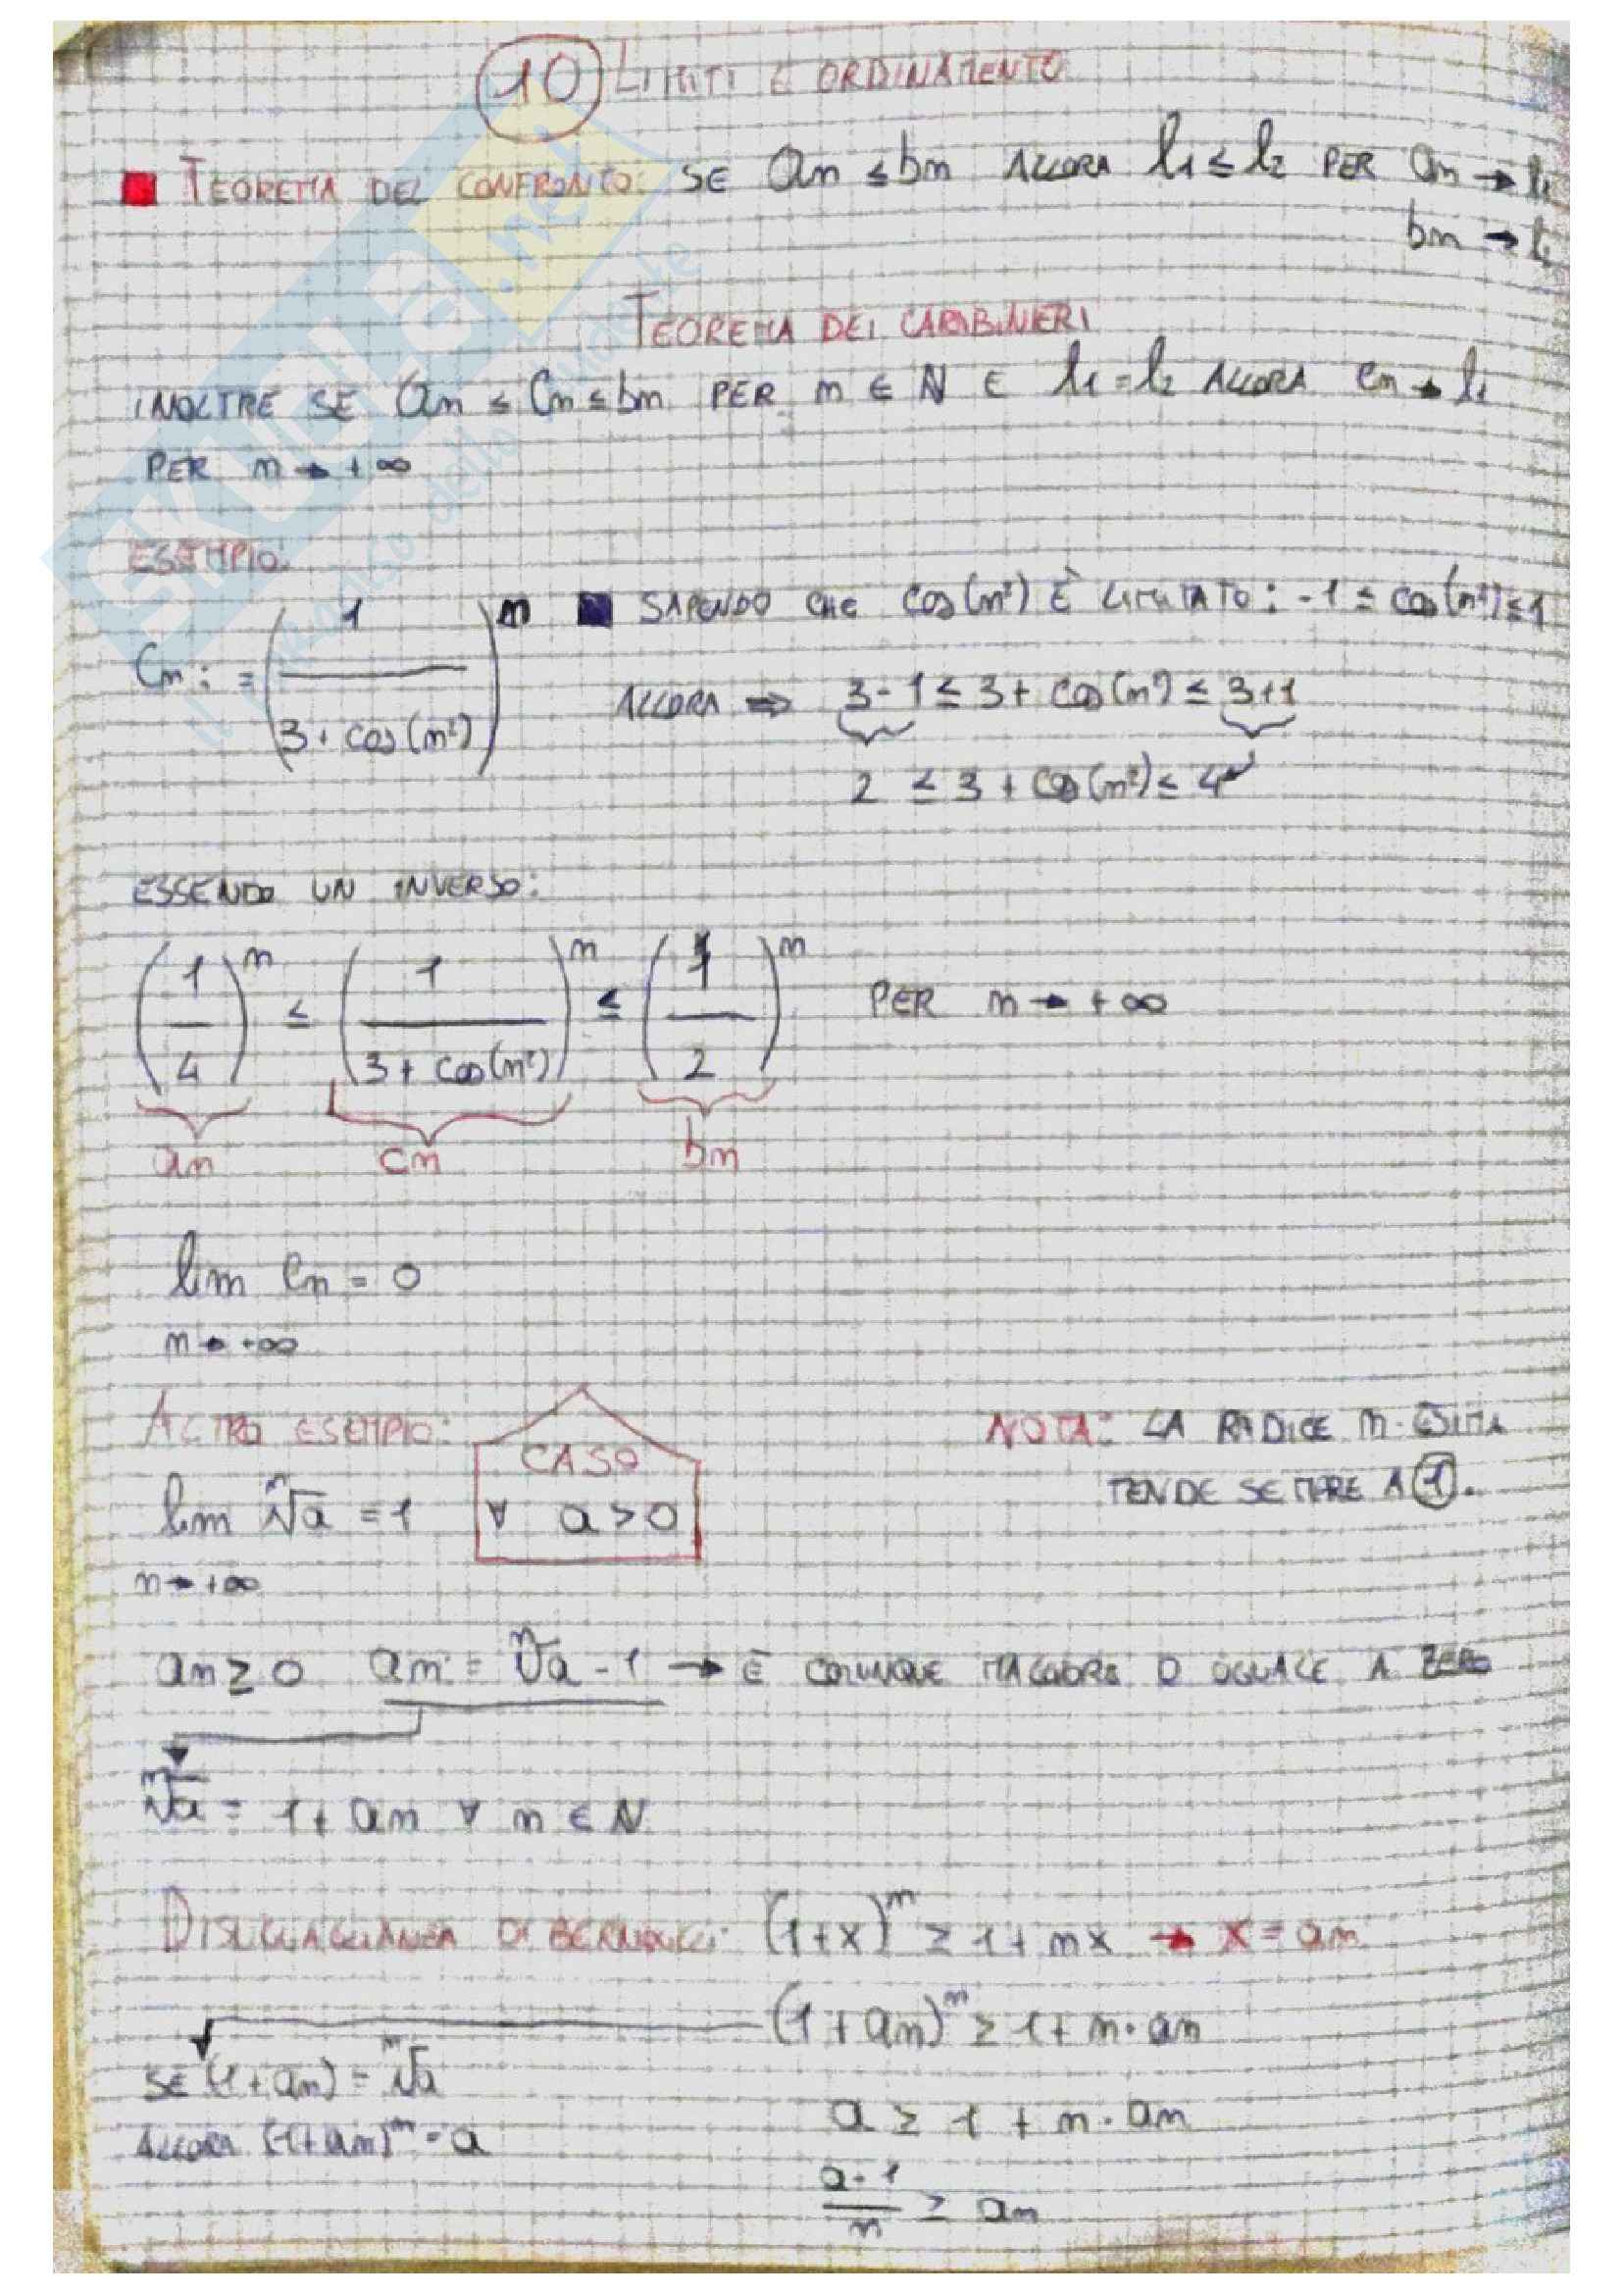 10 LIMITI E ORDINAMENTO
TEOREMA DEL CONFRONTO: SE an ≤ bn ALLORA l1 ≤ l2 PER an → l1
bn → l2
TEOREMA DEI CARABINIERI
INOLTRE SE an ≤ Cn ≤ bn PER n ∈ N E l1 = l2 ALLORA cn → l1
PER n → +∞
ESEMPIO:
Cn := (1 / (3 + cos(n²)))^n ■ SAPENDO CHE cos(n²) È LIMITATO: -1 ≤ cos(n²) ≤ 1
ALLORA ⇒ 3-1 ≤ 3 + cos(n²) ≤ 3+1
2 ≤ 3 + cos(n²) ≤ 4
ESSENDO UN INVERSO:
(1/4)^n ≤ (1 / (3 + cos(n²)))^n ≤ (1/2)^n PER n → +∞
an cn bn
lim cn = 0
n → +∞
ALTRO ESEMPIO: CASO NOTA: LA RADICE n-ESIMA
lim ⁿ√a = 1 ∀ a > 0 TENDE SEMPRE A 1.
n → +∞
an ≥ 0 an := ⁿ√a - 1 → È COMUNQUE MAGGIORE O UGUALE A ZERO
ⁿ√a = 1 + an ∀ n ∈ N
DISUGUAGLIANZA DI BERNOULLI: (1+x)^n ≥ 1 + nx → x = an
(1 + an)^n ≥ 1 + n · an
SE (1 + an) = ⁿ√a
a ≥ 1 + n · an
ALLORA (1 + an)^n = a
(a - 1)/n ≥ an
skuola.net